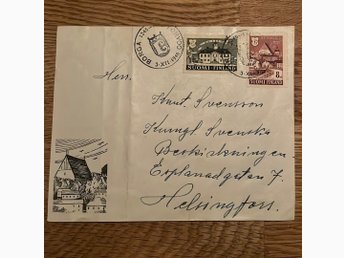 BORGÅ
3.XII.1946
SUOMI-FINLAND
SUOMI FINLAND
8
Herr.
Knut. Svensson
Kungl Svenska
Beskickningen
Esplanadgatan 7.
Helsingfors.